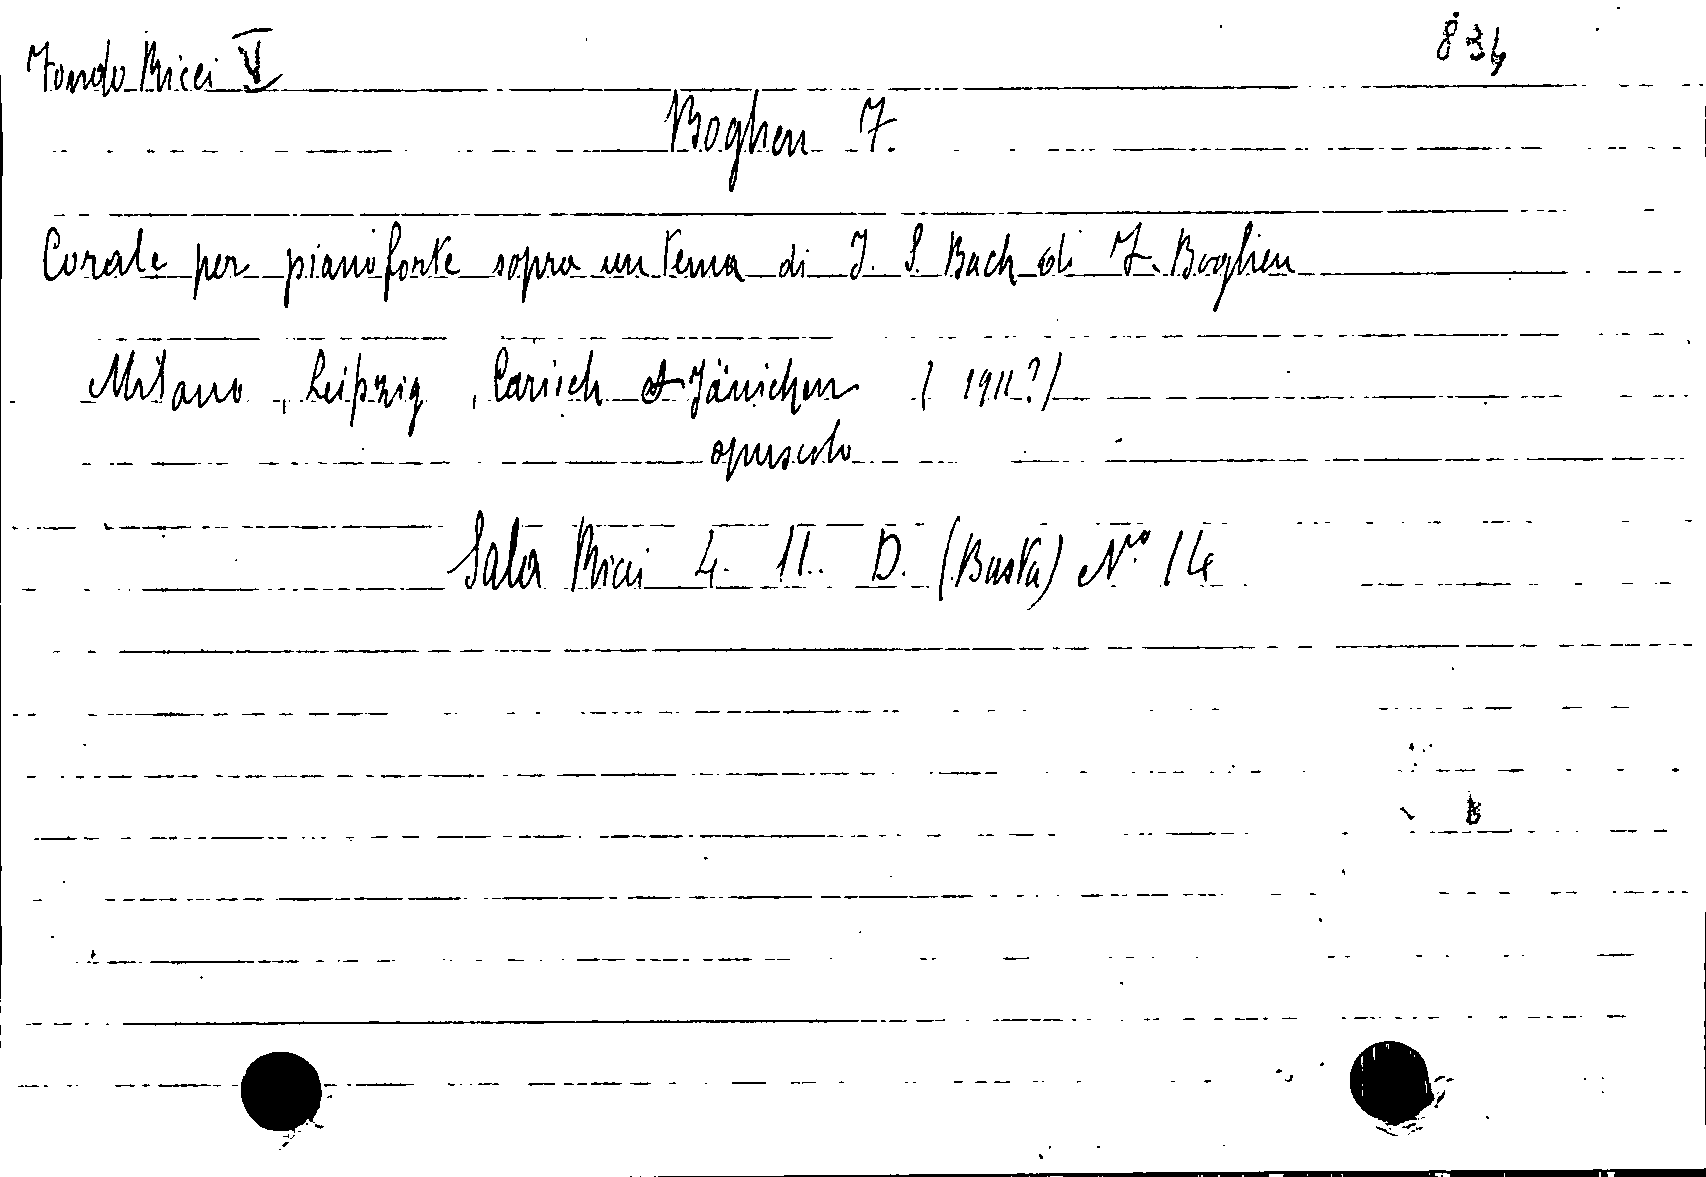 Fondo Ricci V 834
Boghen F.
Corale per pianoforte sopra un tema di J. S. Bach di F. Boghen
Milano, Leipzig, Carisch & Jänichen (1911?)
opuscolo
Sala Ricci 4. 11. D. (Busta) Nro 14